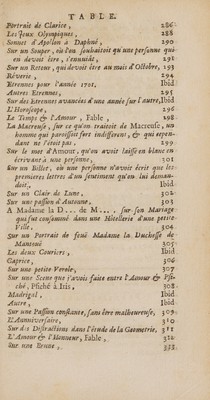 TABLE.
Portrait de Clarice, 286
Les Jeux Olympiques, 288
Sonnet d'Apollon à Daphné, 290
Sur un Souper, où l'on souhaitoit qu'une personne qui
en devoit être, s'ennuiât, 292
Sur un Retour, qui devoit être au mois d'Octobre, 293
Rêverie, 294
Etrennes pour l'année 1701, Ibid.
Autres Etrennes, 295
Sur des Etrennes avancées d'une année sur l'autre, Ibid
L'Horoscope, 296
Le Temps & l'Amour, Fable, 298
La Macreuse, sur ce qu'on traitoit de Macreuse, un
homme qui paroissoit fort indifférent, & qui cepen-
dant ne l'étoit pas. 299
Sur le mot d'Amour, qu'on avoit laissé en blanc en
écrivant à une personne, 301
Sur un Billet, où une personne n'avoit écrit que les
premieres lettres d'un sentiment qu'on lui deman-
doit, Ibid
Sur un Clair de Lune, 302
Sur une passion d'Automne, 303
A Madame la D... de M..., sur son Mariage
qui fut consommé dans une Hôtellerie d'une petite
Ville, 304
Sur un Portrait de feuë Madame la Duchesse de
Mantouë 305
Les deux Couriers, Ibid
Caprice, 306
Sur une petite Verole, 307
Sur une Scene que j'avois faite entre l'Amour & Psi-
ché, Psiché à Iris, 308
Madrigal, Ibid
Autre, Ibid
Sur une Passion constante, sans être malheureuse, 309
L'Anniversaire, 310
Sur des Distractions dans l'étude de la Geometrie, 311
L'Amour & l'Honneur, Fable, 312
Sur une Brune,